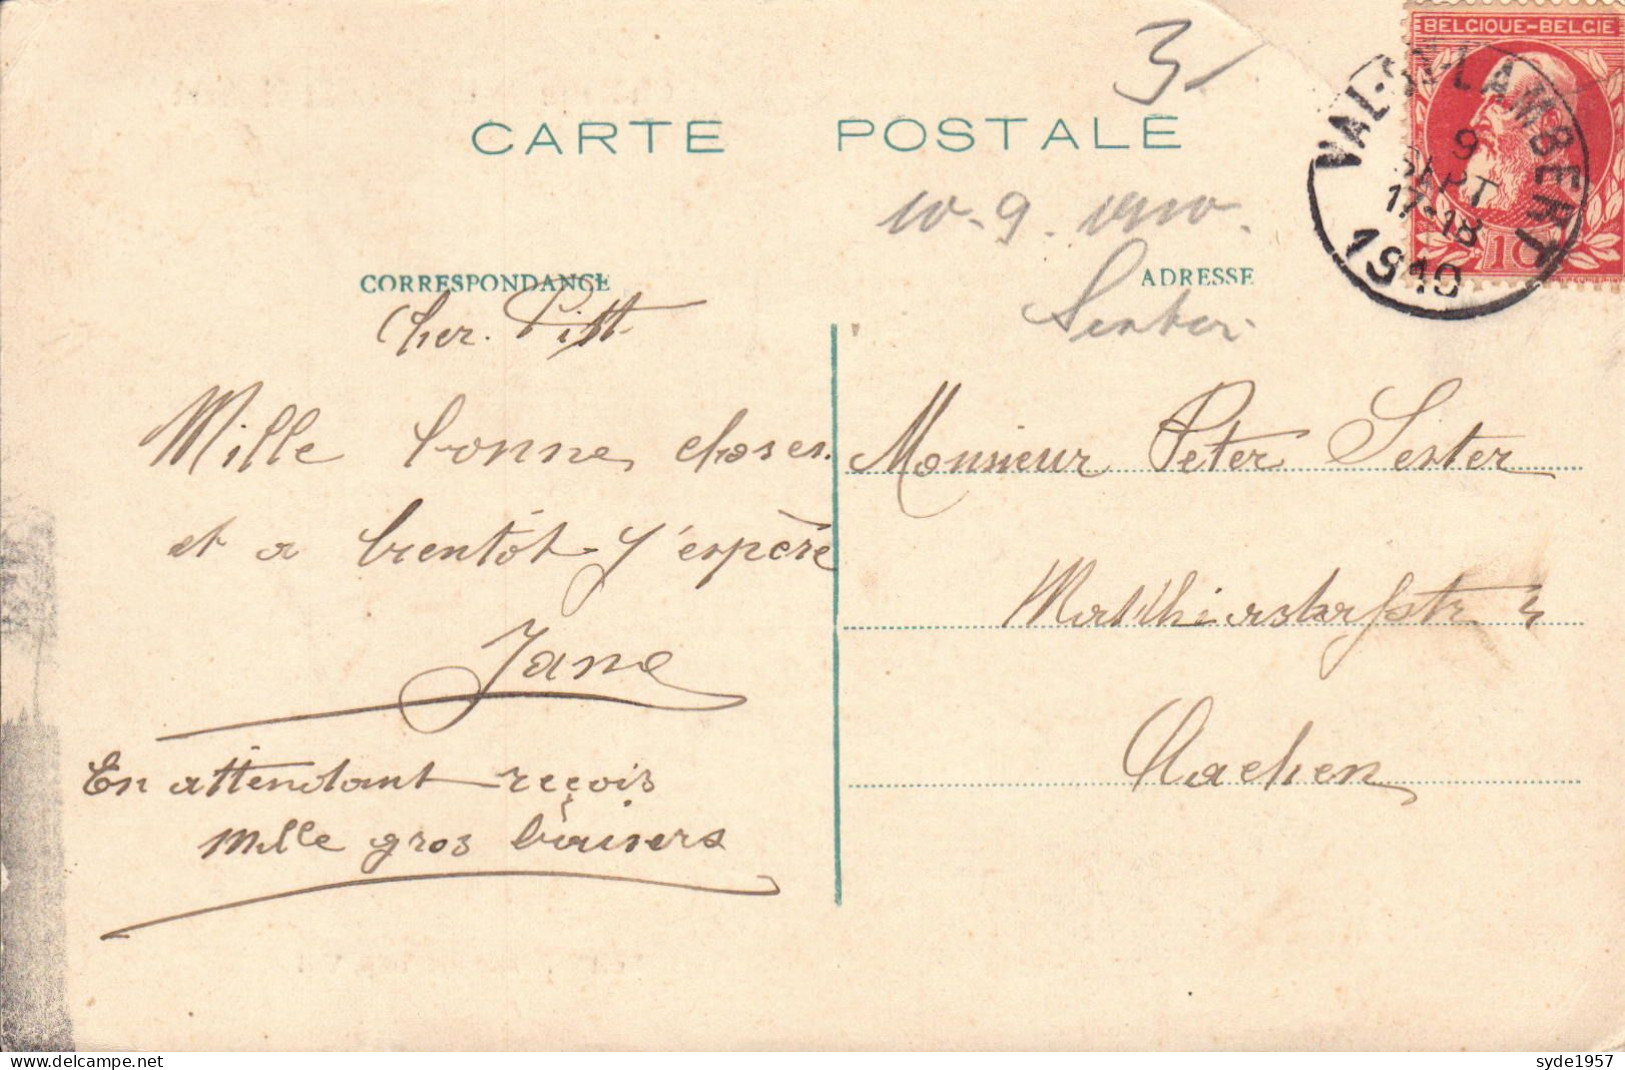 3
BELGIQUE-BELGIE
VAL-ST-LAMBERT
9
SEPT
17-18
1910
10
CARTE POSTALE
10-9. 1910.
CORRESPONDANCE
ADRESSE
Cher. Pitt
Mille bonne choses.
et a bientôt j'espère
Jane
En attendant reçois
mille gros baisers
Monsieur Peter Sester
Matthiashofstr
Aachen
syde1957